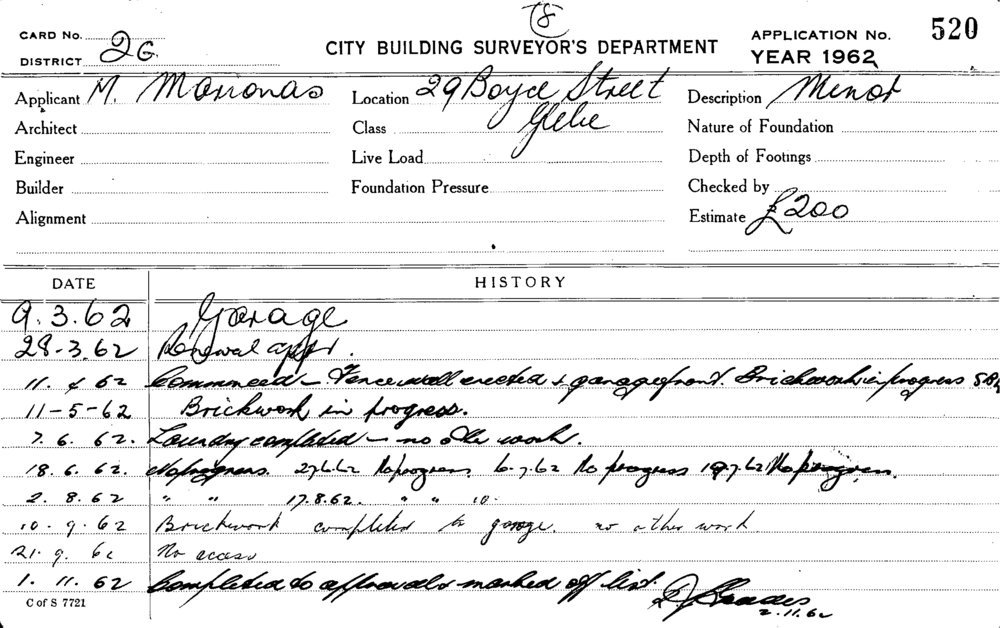 78
CARD No.
DISTRICT 2G
CITY BUILDING SURVEYOR'S DEPARTMENT
APPLICATION No. 520
YEAR 1962
Applicant M. Location 29 Boyce Street Description Minor
Architect Class Glebe Nature of Foundation
Engineer Live Load Depth of Footings
Builder Foundation Pressure Checked by
Alignment Estimate £200
DATE HISTORY
9.3.62 Garage
28-3.62 Renewal appr.
11. 4 62 Commenced – Fence wall erected & garage front. Brickwork in progress
11-5-62 Brickwork in progress.
7. 6. 62. Laundry completed – no other work.
18. 6. 62. No progress. 27.6.62 No progress 6.7.62 No progress 19.7.62 No progress.
2. 8. 62 " " 17.8.62. " "
10. 9. 62 Brickwork completed to garage. no other work
21. 9. 62 No access
1. 11. 62 Completed to approval & marked off list.
2.11.62
C of S 7721